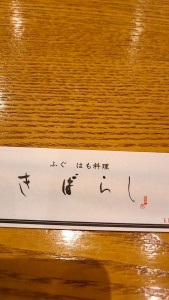 ふぐ　はも料理
きばらし